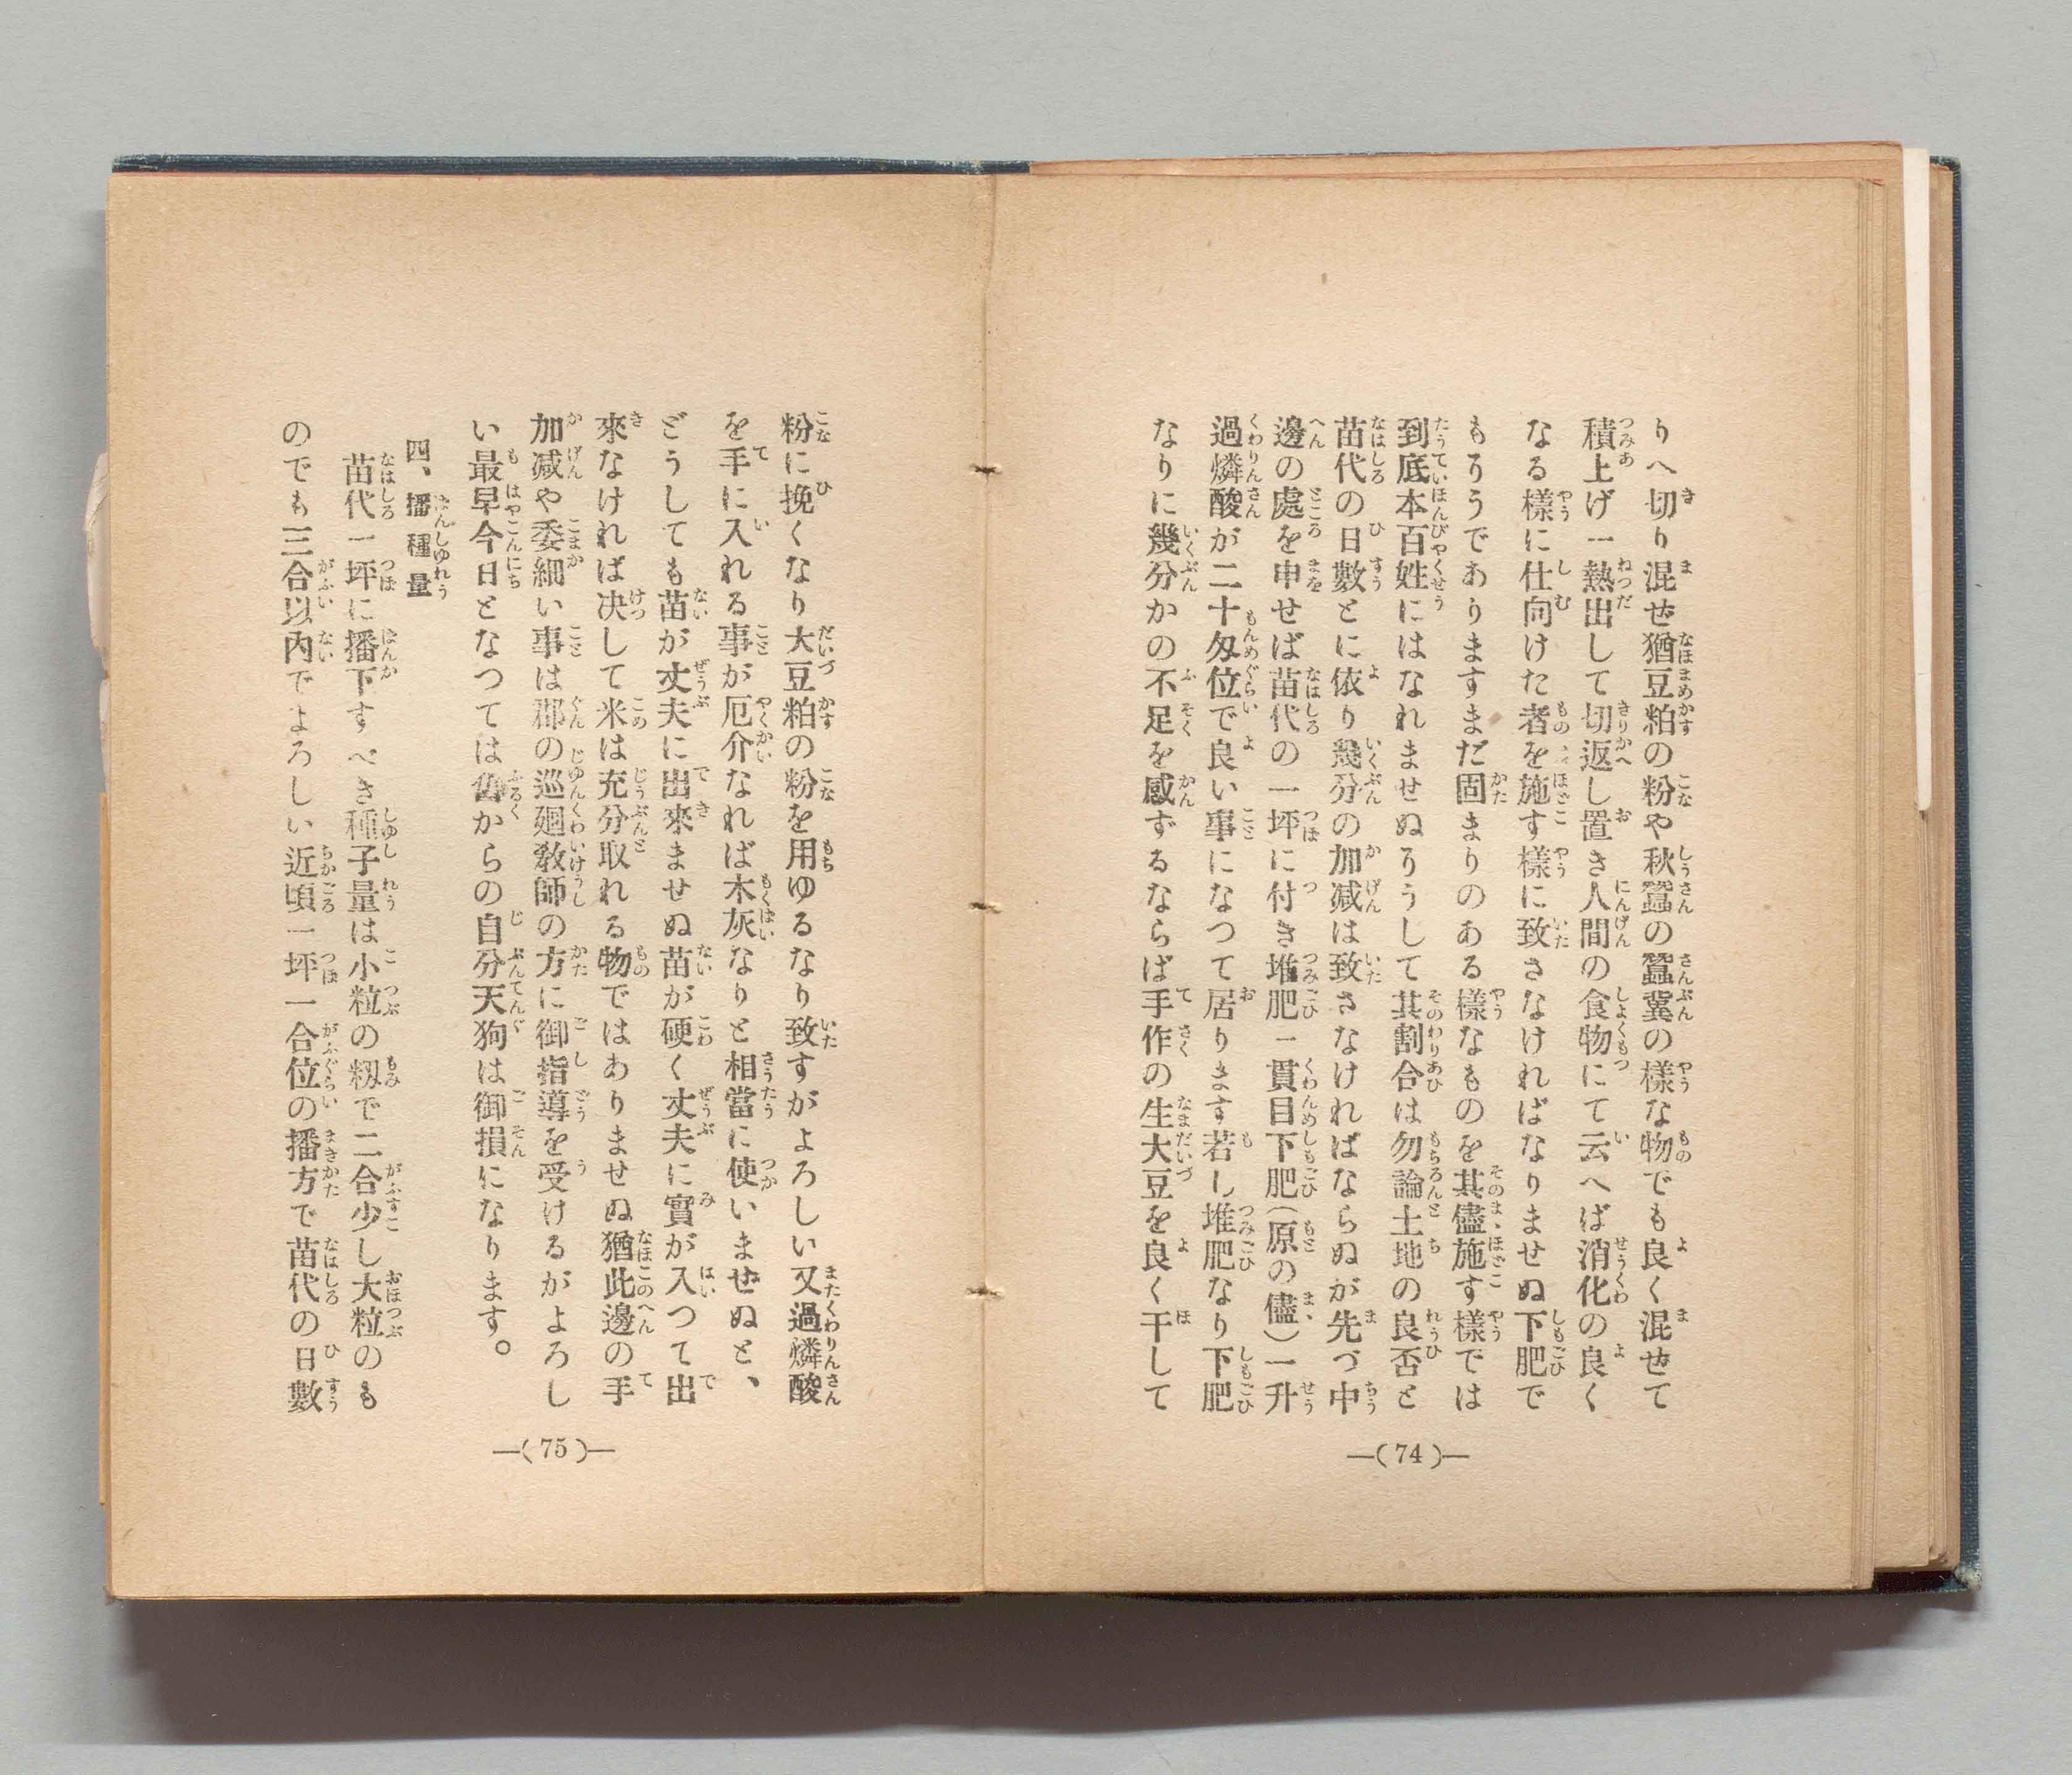 りへ切り混ぜ猶豆粕の粉や秋蠶の蠶糞の樣な物でも良く混ぜて
積上げ一熱出して切返し置き人間の食物にて云へば消化の良く
なる樣に仕向けた者を施す樣に致さなければなりませぬ下肥で
もさうでありますまだ固まりのある樣なものを其儘施す樣では
到底本百姓にはなれませぬさうして其割合は勿論土地の良否と
苗代の日數とに依り幾分の加減は致さなければならぬが先づ中
邊の處を申せば苗代の一坪に付き堆肥一貫目下肥(原の儘)一升
過燐酸が二十匁位で良い事になつて居ります若し堆肥なり下肥
なりに幾分かの不足を感ずるならば手作の生大豆を良く干して
—(74)—
粉に挽くなり大豆粕の粉を用ゆるなり致すがよろしい又過燐酸
を手に入れる事が厄介なれば木灰なりと相當に使いませぬと、
どうしても苗が丈夫に出來ませぬ苗が硬く丈夫に實が入つて出
來なければ决して米は充分取れる物ではありませぬ猶此邊の手
加減や委細い事は郡の巡廻敎師の方に御指導を受けるがよろし
い最早今日となつては舊からの自分天狗は御損になります。
四、播種量
苗代一坪に播下すべき種子量は小粒の籾で二合少し大粒のも
のでも三合以內でよろしい近頃一坪一合位の播方で苗代の日數
—(75)—